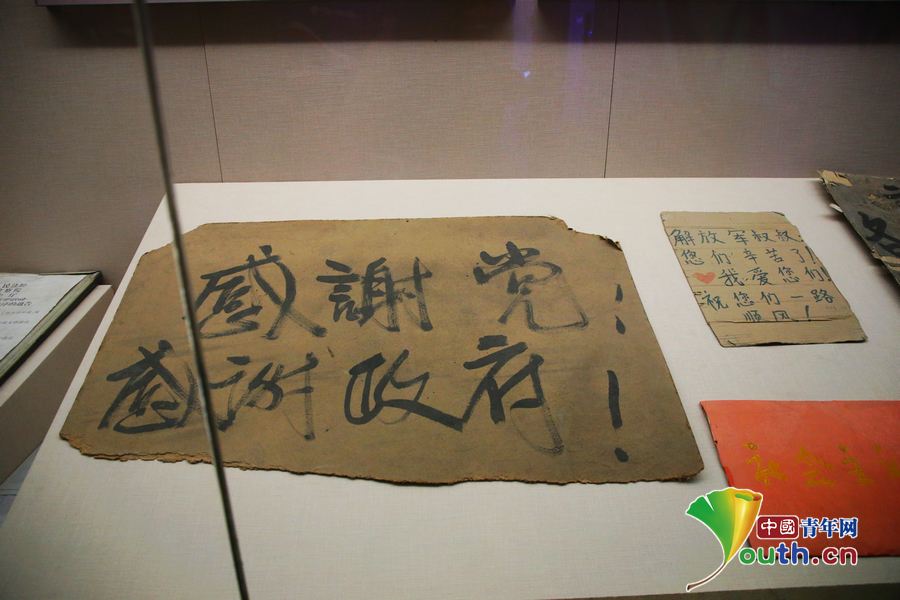 感謝党！
感谢政府！
解放军叔叔，
您们辛苦了！
❤我爱您们！
祝您们一路
顺风！
社会主
中國青年网
Youth.cn